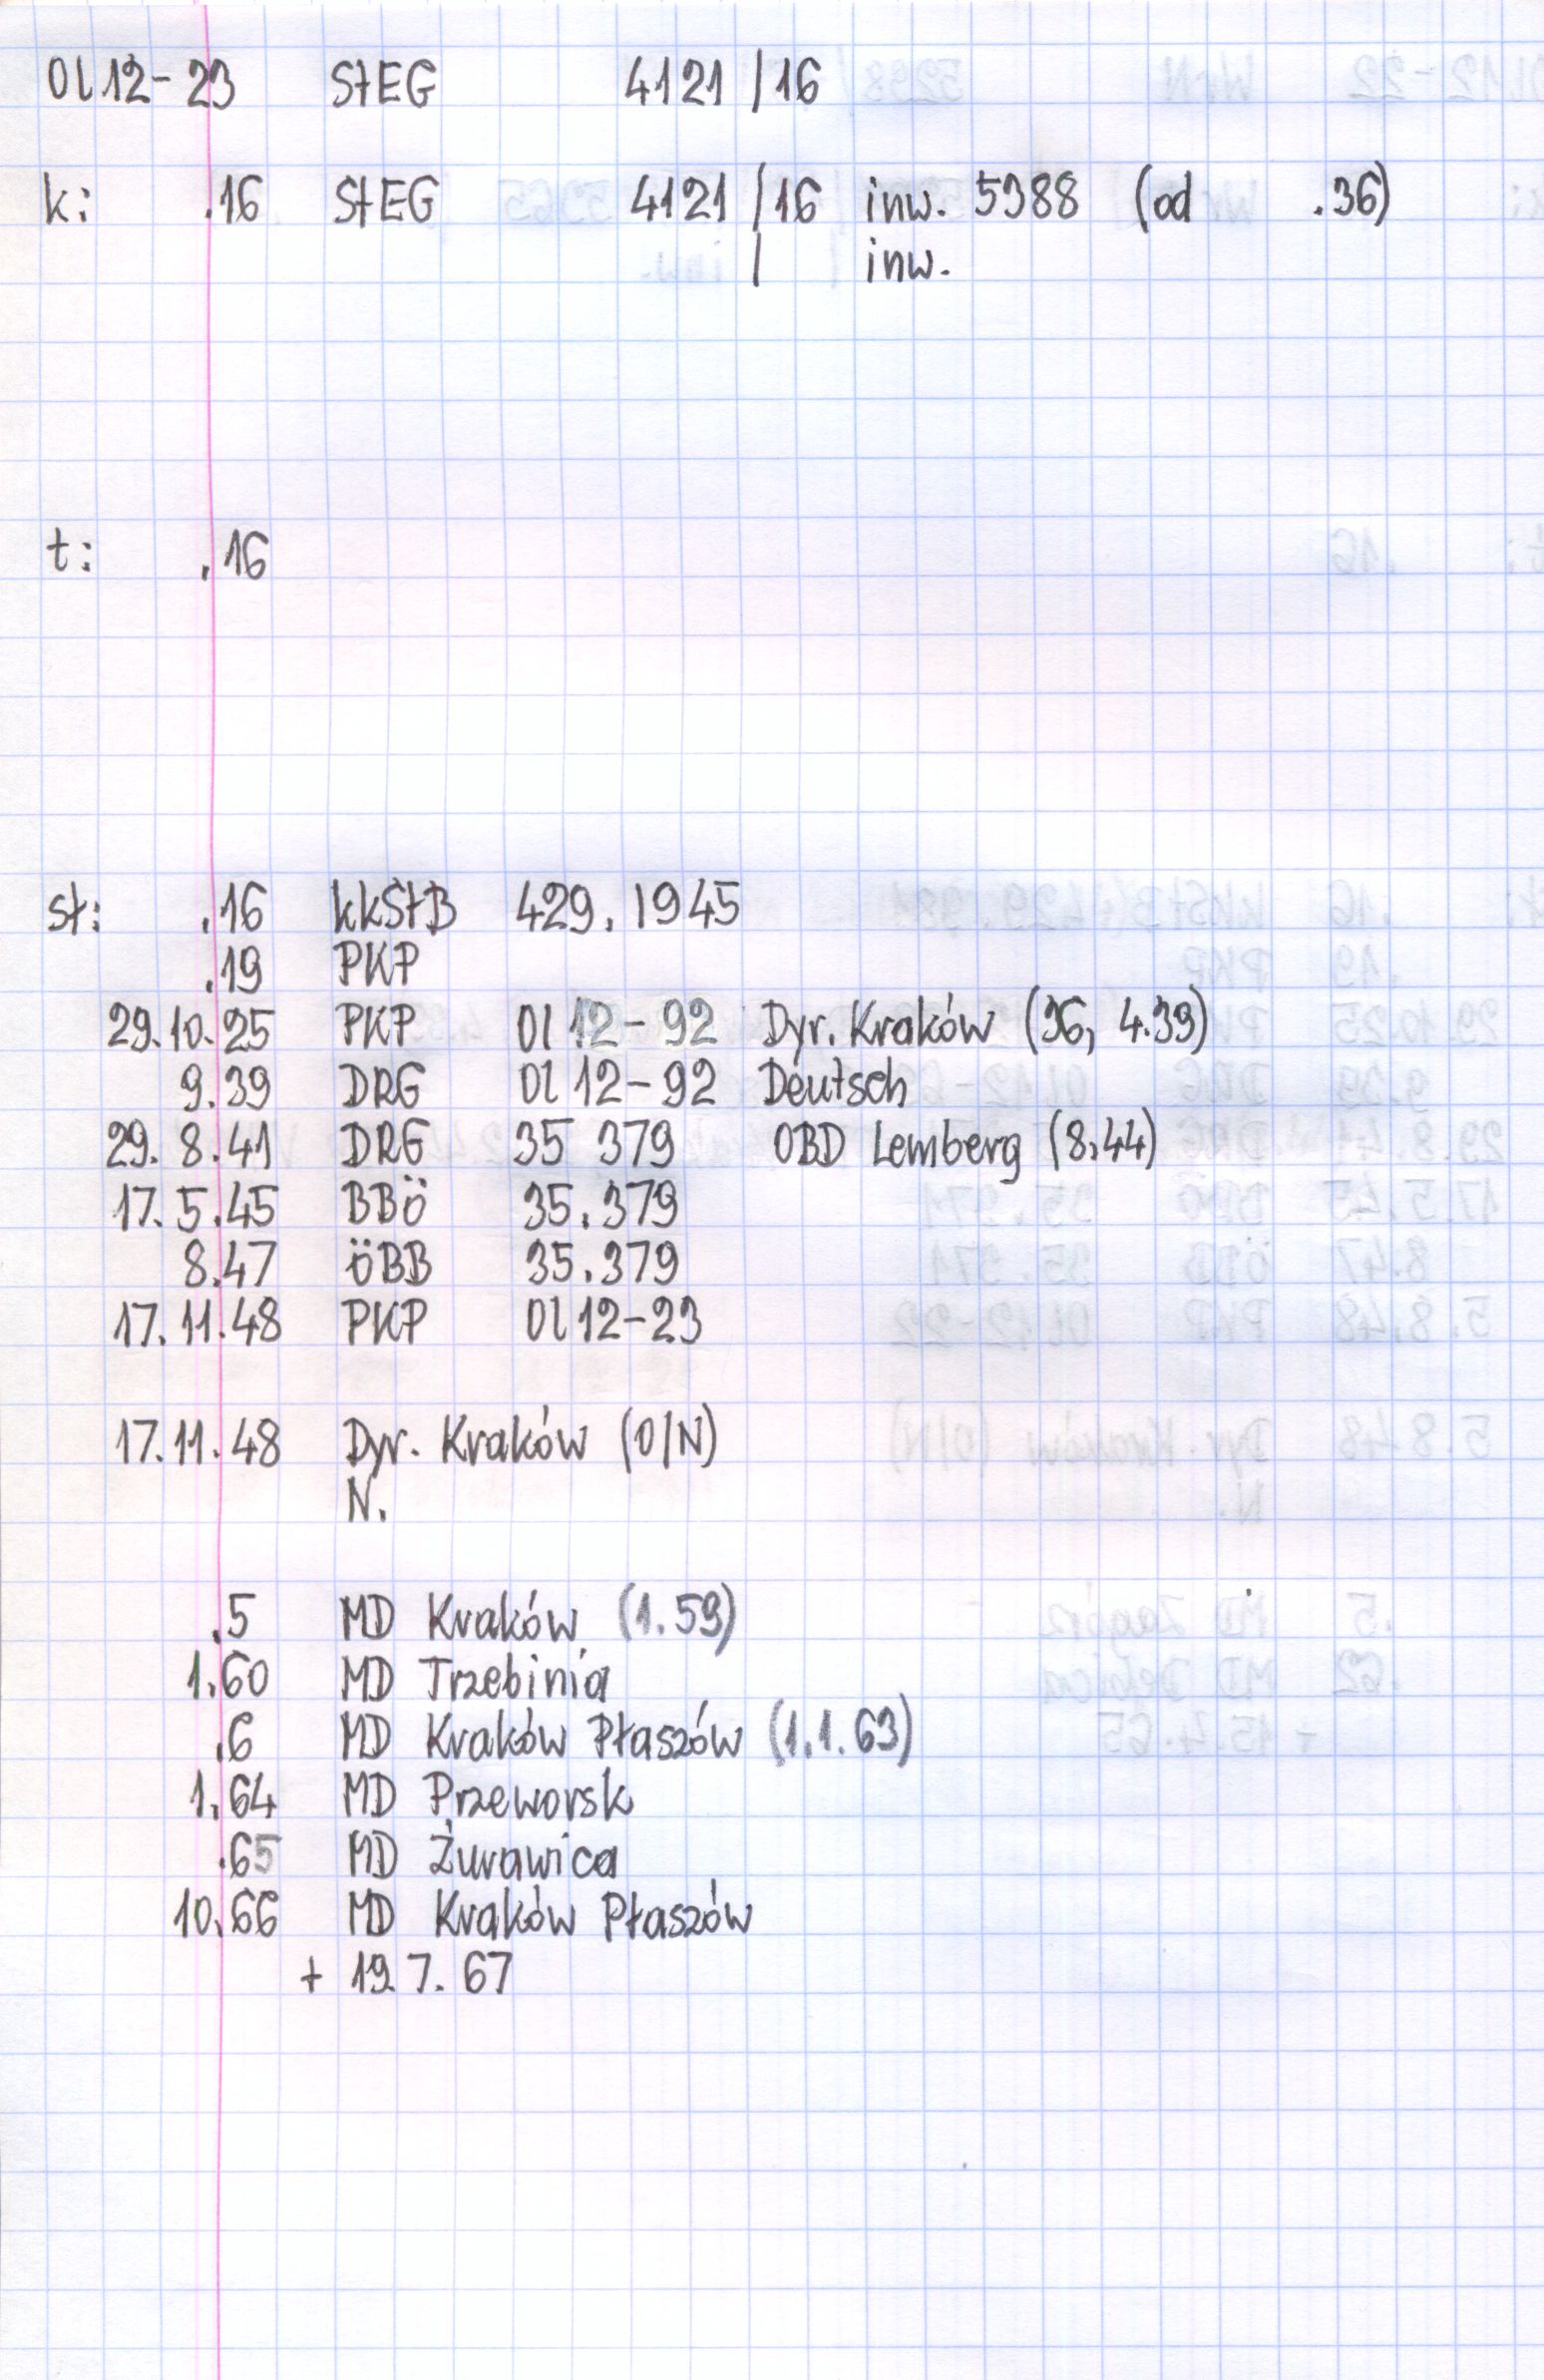 Ol12-23 StEG 4121/16
k: .16 StEG 4121/16 inw. 5388 (od .36)
/ inw.
t: .16
st: .16 kkStB 429.1945
.19 PKP
29.10.25 PKP Ol12-92 Dyr. Kraków (36, 4.39)
9.39 DRG Ol12-92 Deutsch
29.8.41 DRG 35 379 OBD Lemberg (8.44)
17.5.45 BBÖ 35.379
8.47 ÖBB 35.379
17.11.48 PKP Ol12-23
17.11.48 Dyr. Kraków (O/N)
N.
.5 MD Kraków (1.59)
1.60 MD Trzebinia
.6 MD Kraków Płaszów (1.1.63)
1.64 MD Przeworsk
.65 MD Żurawica
10.66 MD Kraków Płaszów
+ 19.7.67